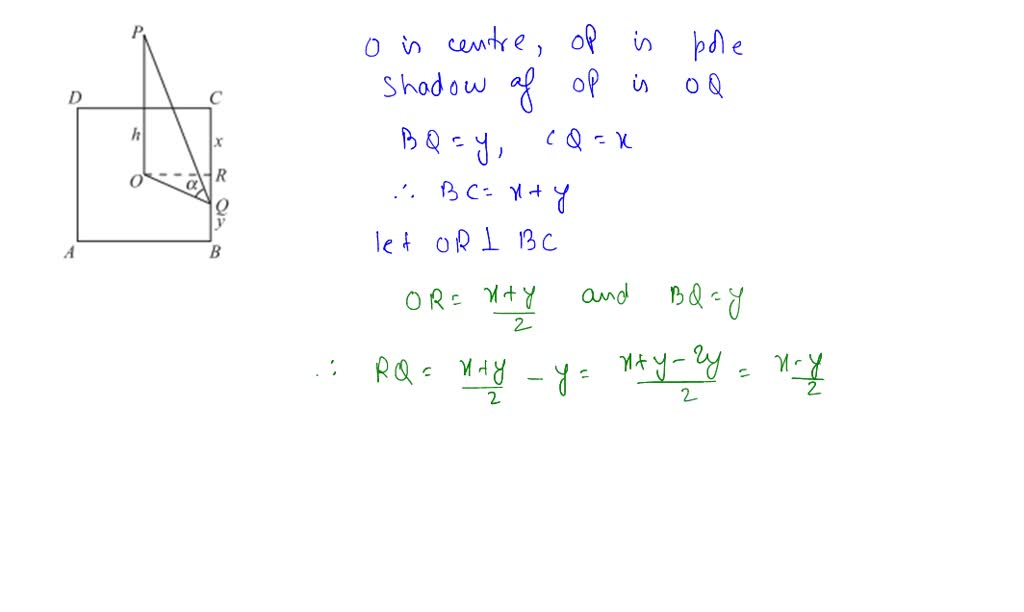 P
D
C
h
x
O
α
R
Q
y
A
B
O is centre, OP is pole
shadow of OP is OQ
BQ = y, CQ = x
∴ BC = x + y
let OR ⊥ BC
OR = x+y/2 and BQ = y
∴ RQ = x+y/2 - y = x+y-2y/2 = x-y/2